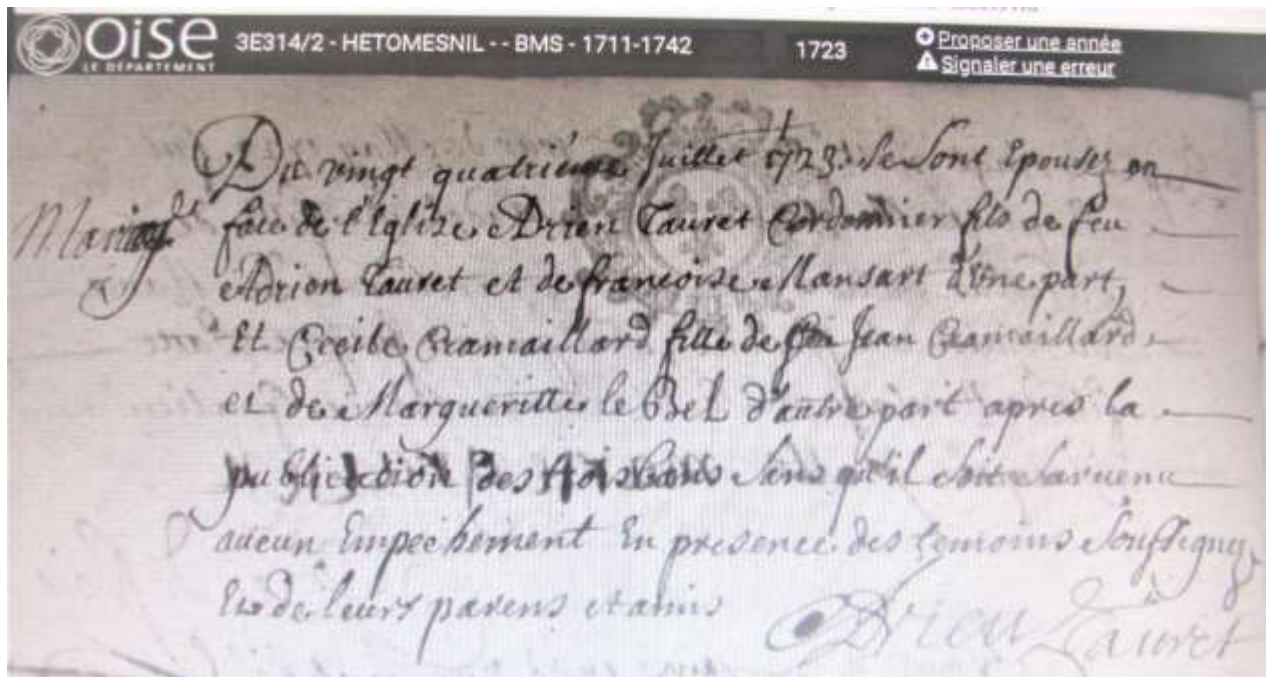 Oise
LE DÉPARTEMENT
3E314/2 - HETOMESNIL - - BMS - 1711-1742
1723
Proposer une année
Signaler une erreur
Du vingt quatriéme Juillet 1723. Se Sont Epousez en
Mariage
face de l'Eglize Adrien Tauret Cordonnier fils de feu
Adrien Tauret et de francoise Mansart d'une part,
Et Cecile Cramaillard fille de feu Jean Cramaillard
et de Margueritte le Bel d'autre part apres la
publication des trois bans Sans qu'il Soit Survenu
aucun Empechement En presence des temoins Soussignez
Et de leurs parens et amis
Adrien Tauret